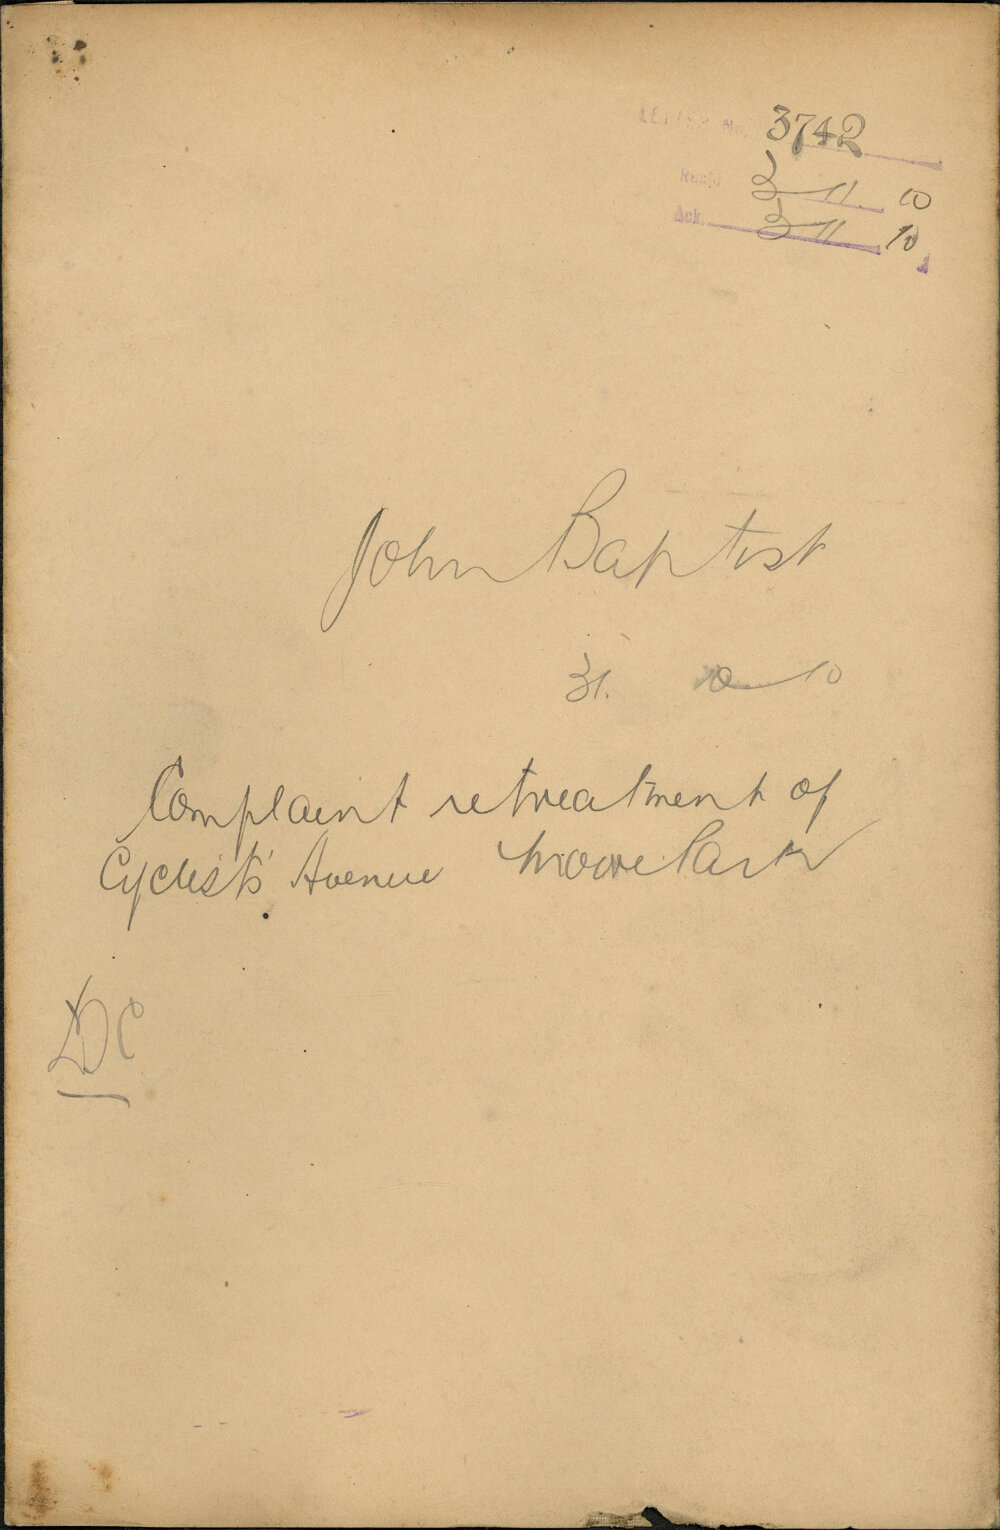 LETTER No. 3742
Rec'd 3 11. 10
Ack. 3 11. 10
John Baptist
31. 10 10
Complaint re treatment of
Cyclists' Avenue Moore Park
DC